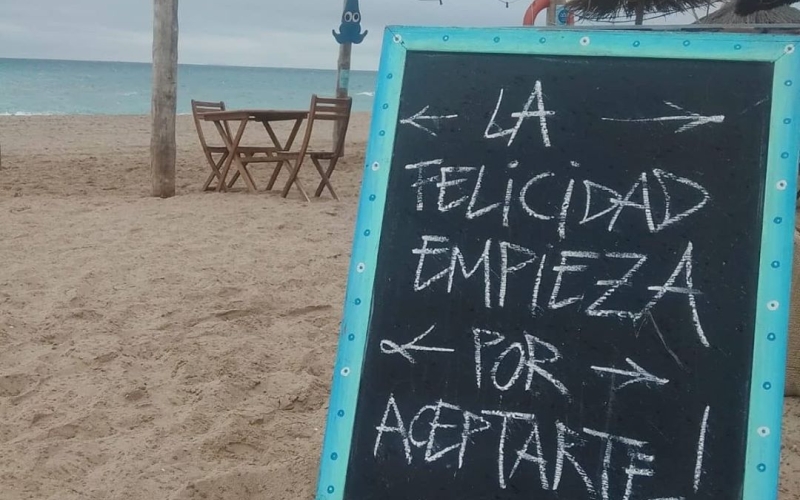 ← LA →
FELICIDAD
EMPIEZA
← POR →
ACEPTARTE!